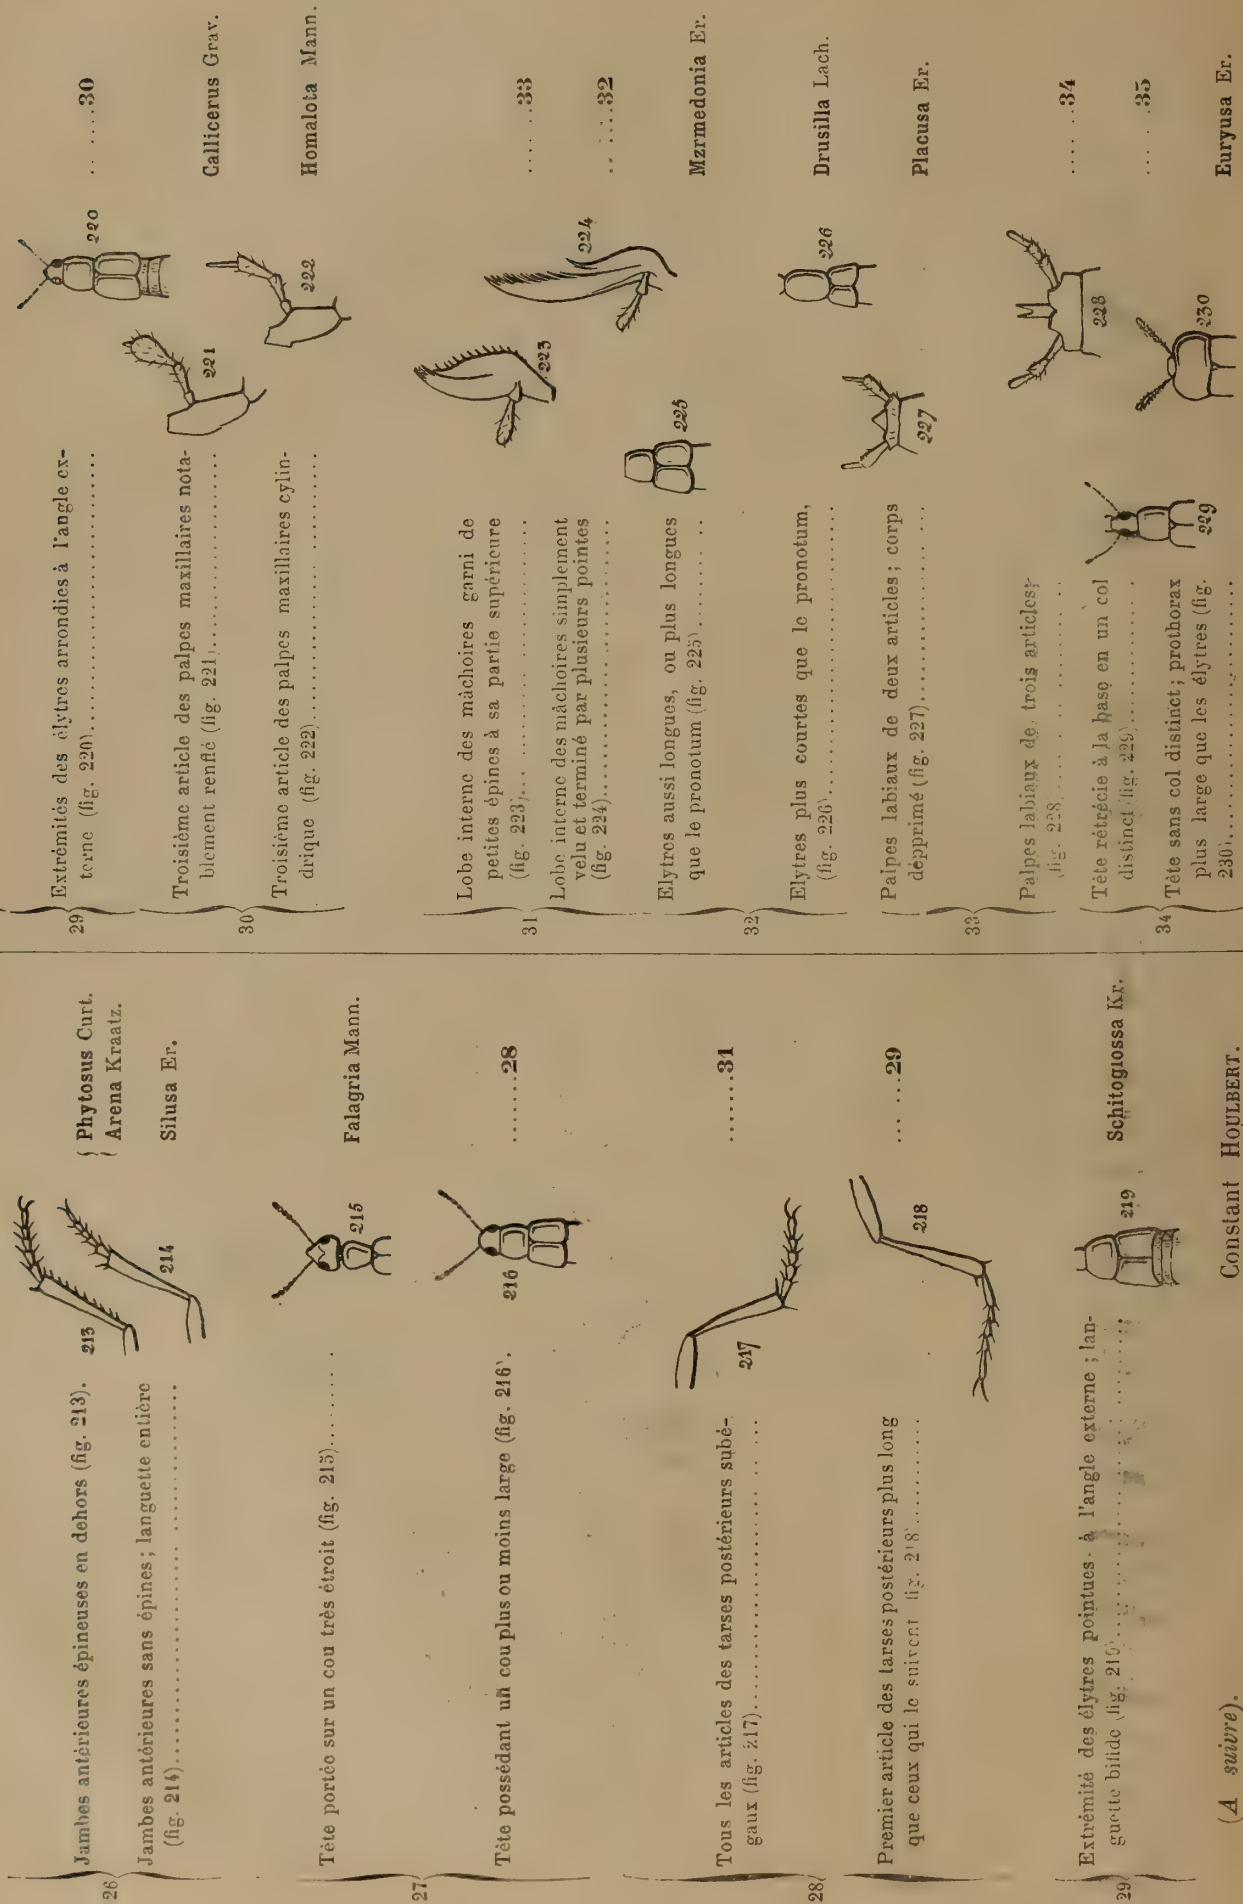 26
Jambes antérieures épineuses en dehors (fig. 213).
213
{ Phytosus Curt.
{ Arena Kraatz.
Jambes antérieures sans épines; languette entière
(fig. 214)
214
Silusa Er.
27
Tête portée sur un cou très étroit (fig. 215)
215
Falagria Mann.
Tête possédant un cou plus ou moins large (fig. 216).
216
.......28
28
Tous les articles des tarses postérieurs subé-
gaux (fig. 217)
217
.......31
Premier article des tarses postérieurs plus long
que ceux qui le suivent fig. 218
218
... ...29
29
Extrémité des élytres pointues à l'angle externe; lan-
guette bifide (fig. 219)
219
Schitoglossa Kr.
(A suivre).
Constant HOULBERT.
29
Extrémités des élytres arrondies à l'angle ex-
terne (fig. 220)
220
.. .....30
30
Troisième article des palpes maxillaires nota-
blement renflé (fig. 221)
221
Callicerus Grav.
Troisième article des palpes maxillaires cylin-
drique (fig. 222)
222
Homalota Mann.
31
Lobe interne des mâchoires garni de
petites épines à sa partie supérieure
(fig. 223)
223
.... ..33
Lobe interne des mâchoires simplement
velu et terminé par plusieurs pointes
(fig. 224)
224
.. .....32
32
Elytres aussi longues, ou plus longues
que le pronotum (fig. 225)
225
Mzrmedonia Er.
Elytres plus courtes que le pronotum,
(fig. 226)
226
Drusilla Lach.
33
Palpes labiaux de deux articles; corps
dépprimé (fig. 227)
227
Placusa Er.
Palpes labiaux de trois articles;
(fig. 228)
228
.... ..34
34
Tête rétrécie à la base en un col
distinct (fig. 229)
229
.... ..35
Tête sans col distinct; prothorax
plus large que les élytres (fig.
230)
230
Euryusa Er.